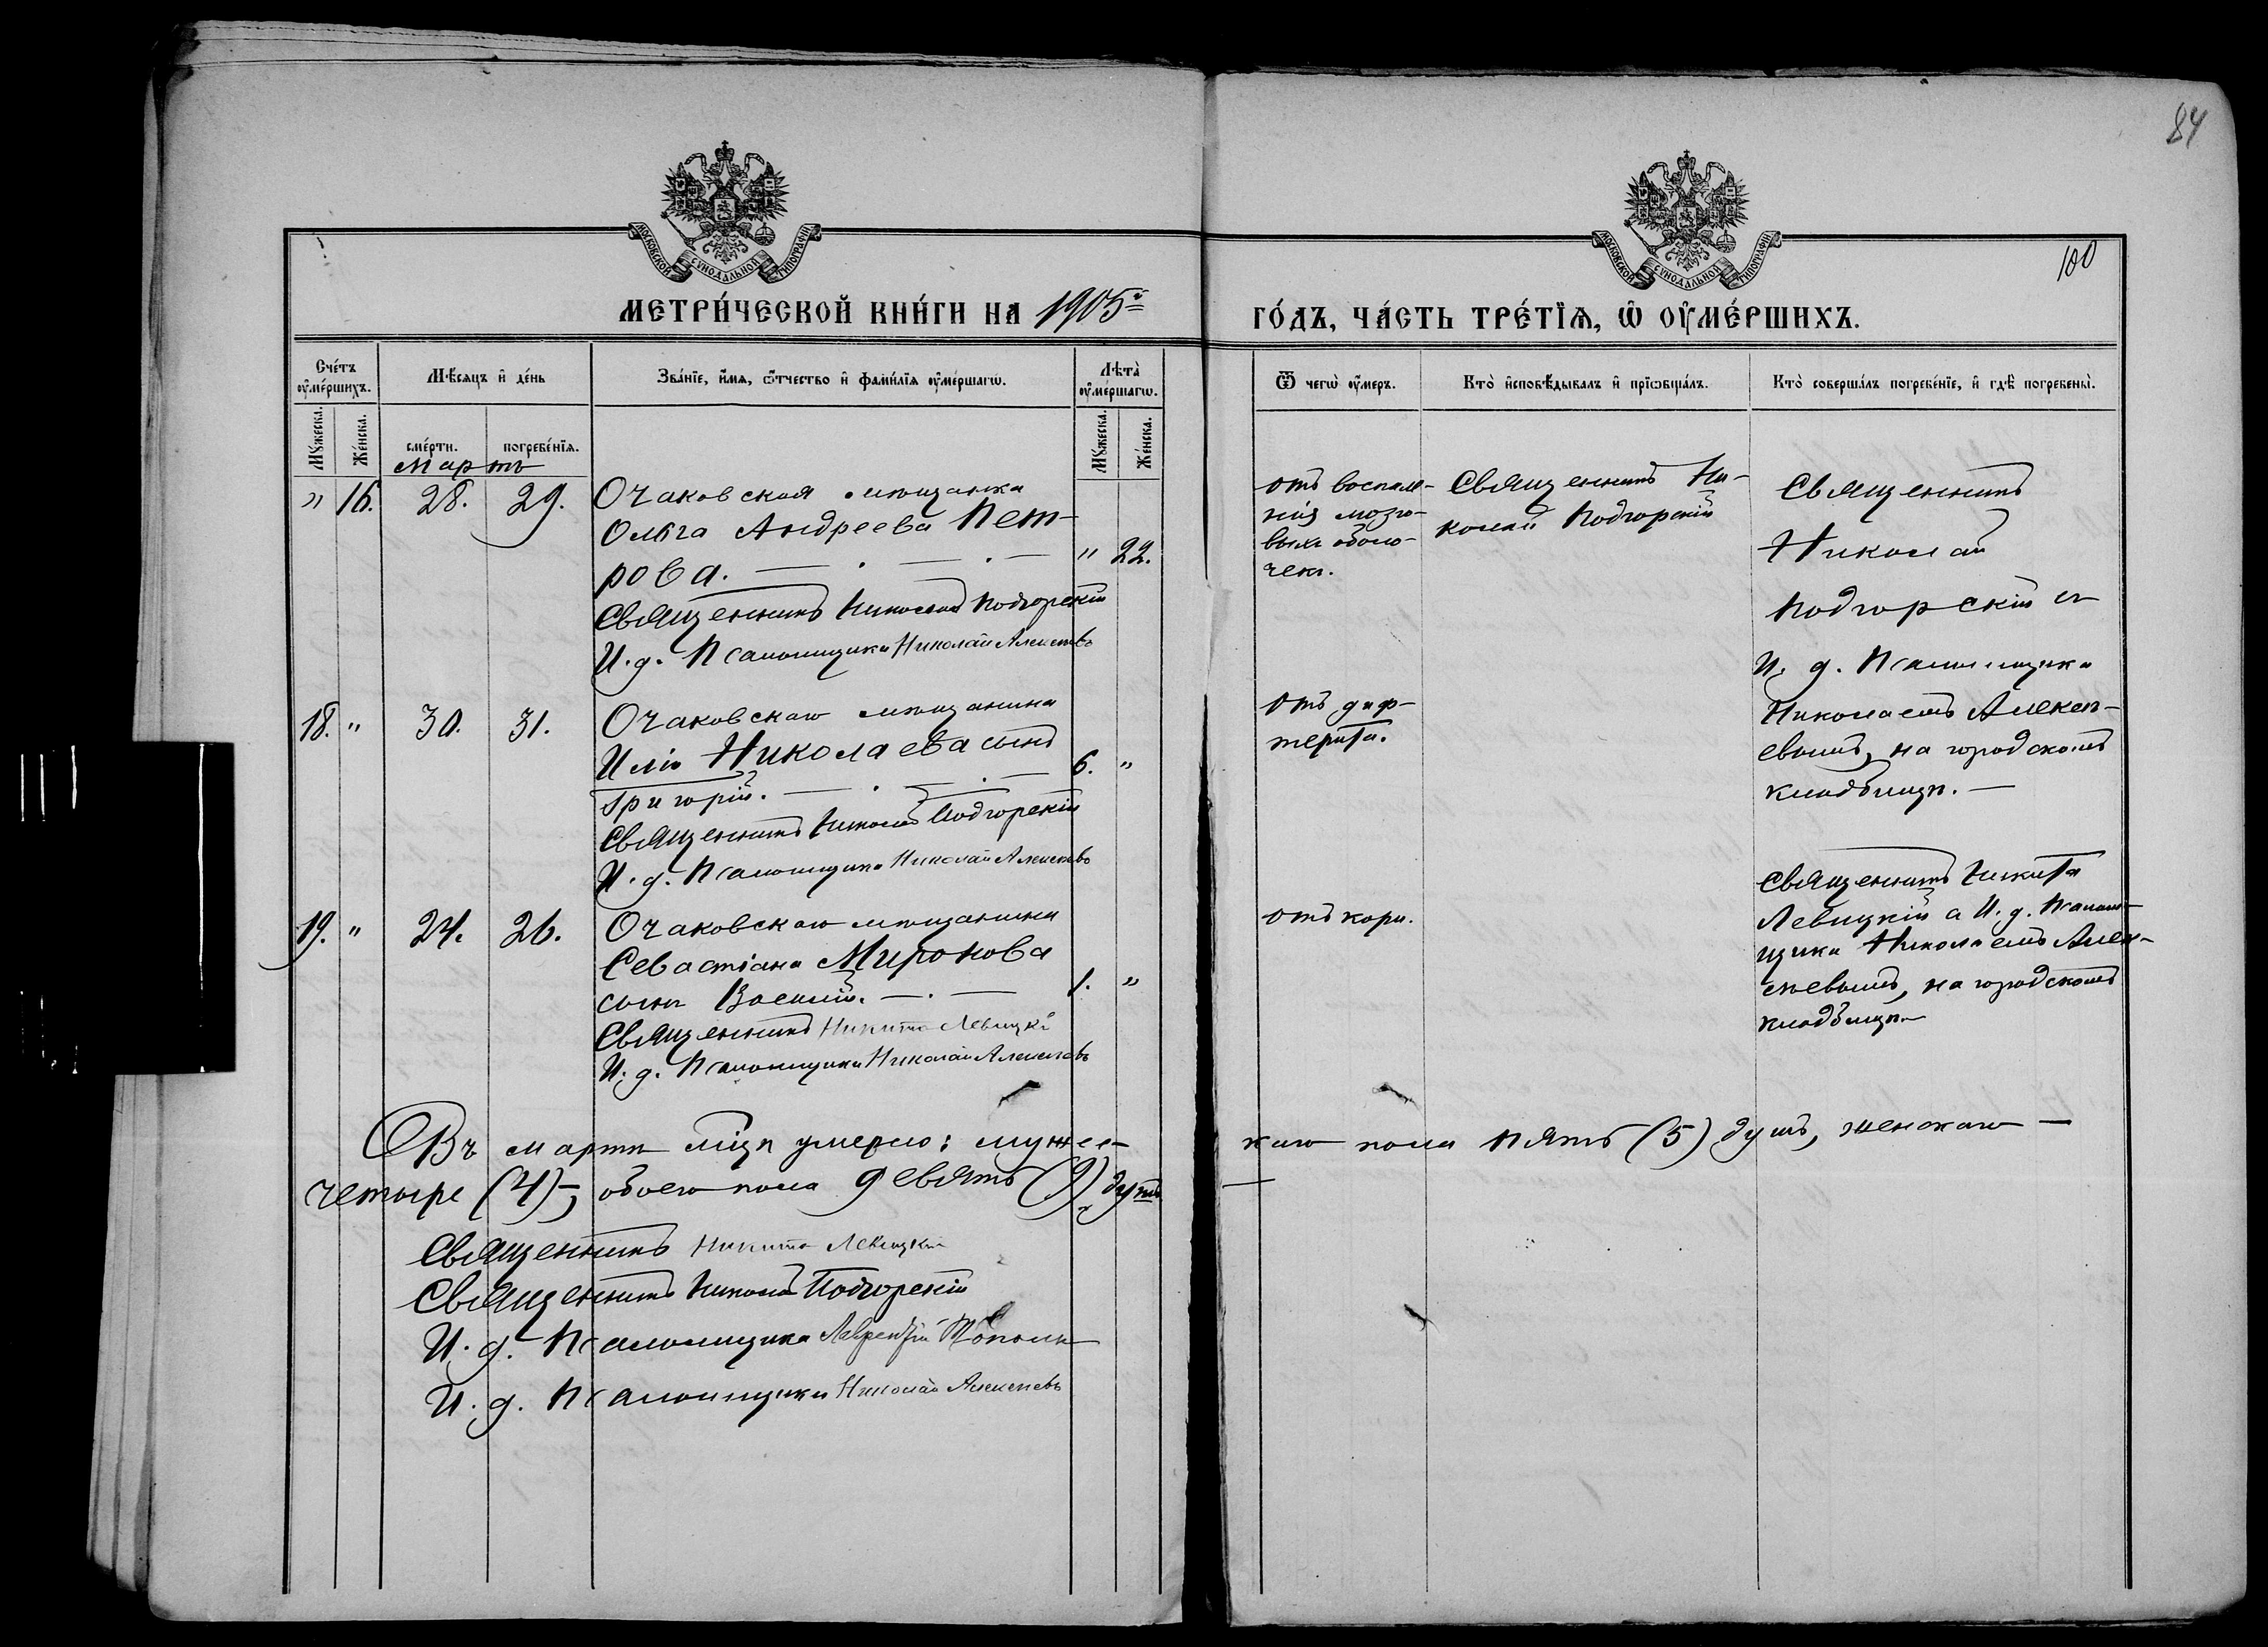 84
100
МОСКОВСКОЙ СѴНОДАЛЬНОЙ ТИПОГРАФІИ
МОСКОВСКОЙ СѴНОДАЛЬНОЙ ТИПОГРАФІИ
МЕТРИ́ЧЕСКОЙ КНИ́ГИ НА 1905й ГО́ДЪ, ЧА́СТЬ ТРЕ́ТЇѦ, Ѡ҆ ОУ҆МЕ́РШИХЪ.
Сче́тъ оу҆ме́ршихъ.
Мꙋ́жеска.
Же́нска.
Мѣ́сѧцъ и҆ де́нь
сме́рти.
погребе́нїѧ.
Зва́нїе, и҆́мѧ, ѻ҆́тчество и҆ фами́лїѧ оу҆ме́ршагѡ.
Лѣ̀та оу҆ме́ршагѡ.
Мꙋ́жеска.
Же́нска.
Ѿ чегѡ̀ оу҆́меръ.
Кто̀ и҆сповѣ́дывалъ и҆ прїѡбща́лъ.
Кто̀ соверша́лъ погребе́нїе, и҆ гдѣ̀ погребены̀.
Мартъ
" 16. 28. 29. Очаковская мѣщанка
Ольга Андреева Пет-
рова. " 22.
Священникъ Николай Подгорскій
И. д. Псаломщика Николай Алексѣевъ
отъ воспале-
нія мозго-
выхъ оболо-
чекъ.
Священникъ Ни-
колай Подгорскій
Священникъ
Николай
Подгорскій съ
И. д. Псаломщика
Николаемъ Алексѣ-
евымъ, на городскомъ
кладбищѣ.
18. " 30. 31. Очаковскаго мѣщанина
Иліи Николаева сынъ
Григорій. 6. "
Священникъ Николай Подгорскій
И. д. Псаломщика Николай Алексѣевъ
отъ диф-
терита.
19. " 24. 26. Очаковскаго мѣщанина
Севастіана Миронова
сынъ Василій. 1. "
Священникъ Никита Левицкій
И. д. Псаломщика Николай Алексѣевъ
отъ кори.
Священникъ Никита
Левицкій с И. д. Псалом-
щика Николаемъ Алек-
сѣевымъ, на городскомъ
кладбищѣ.
Въ мартѣ м-цѣ умерло: мужес-
каго пола пять (5) душъ, женскаго —
четыре (4) —, обоего пола девять (9) душъ
Священникъ Никита Левицкій
Священникъ Николай Подгорскій
И. д. Псаломщика Лаврентій
И. д. Псаломщика Николай Алексѣевъ